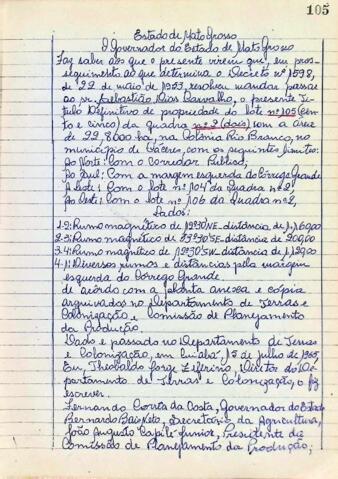 105
Estado de Mato Grosso
O Governador do Estado de Mato Grosso
Faz saber aos que o presente virem que, em pros-
seguimento ao que determina o Decreto nº 1598,
de 22 de maio de 1953, resolveu mandar passar
ao sr. Sebastião Dias Carvalho, o presente Tí-
tulo Definitivo de propriedade do lote nº 105 (cen-
to e cinco) da Quadra nº 2 (dois) com a área
de 22,8600 ha, na Colônia Rio Branco, no
município de Cáceres, com os seguintes limites:
Ao Norte: Com o Corredor Público;
Ao Sul: Com a margem esquerda do Córrego Grande
A Leste: Com o lote nº 104 da Quadra nº 2;
Ao Oeste: Com o lote nº 106 da Quadra nº 2,
Dados:
1-2: Rumo magnético de NE - distância de
2-3: Rumo magnético de SE - distância de
3-4: Rumo magnético de SW - distância de
4-1: Diversos rumos e distâncias pela margem
esquerda do Córrego Grande.
de acôrdo com a planta anexa e cópia
arquivados no Departamento de Terras e
Colonização e Comissão de Planejamento
da Produção.
Dado e passado no Departamento de Terras
e Colonização, em Cuiabá, 15 de julho de 1965,
Eu, Theobaldo Jorge Zeferino, Diretor do De-
partamento de Terras e Colonização, o fiz
escrever.
Fernando Corrêa da Costa, Governador do Estado
Bernardo Bais Neto, Secretário da Agricultura,
João Augusto Capilé Junior, Presidente da
Comissão de Planejamento da Produção;